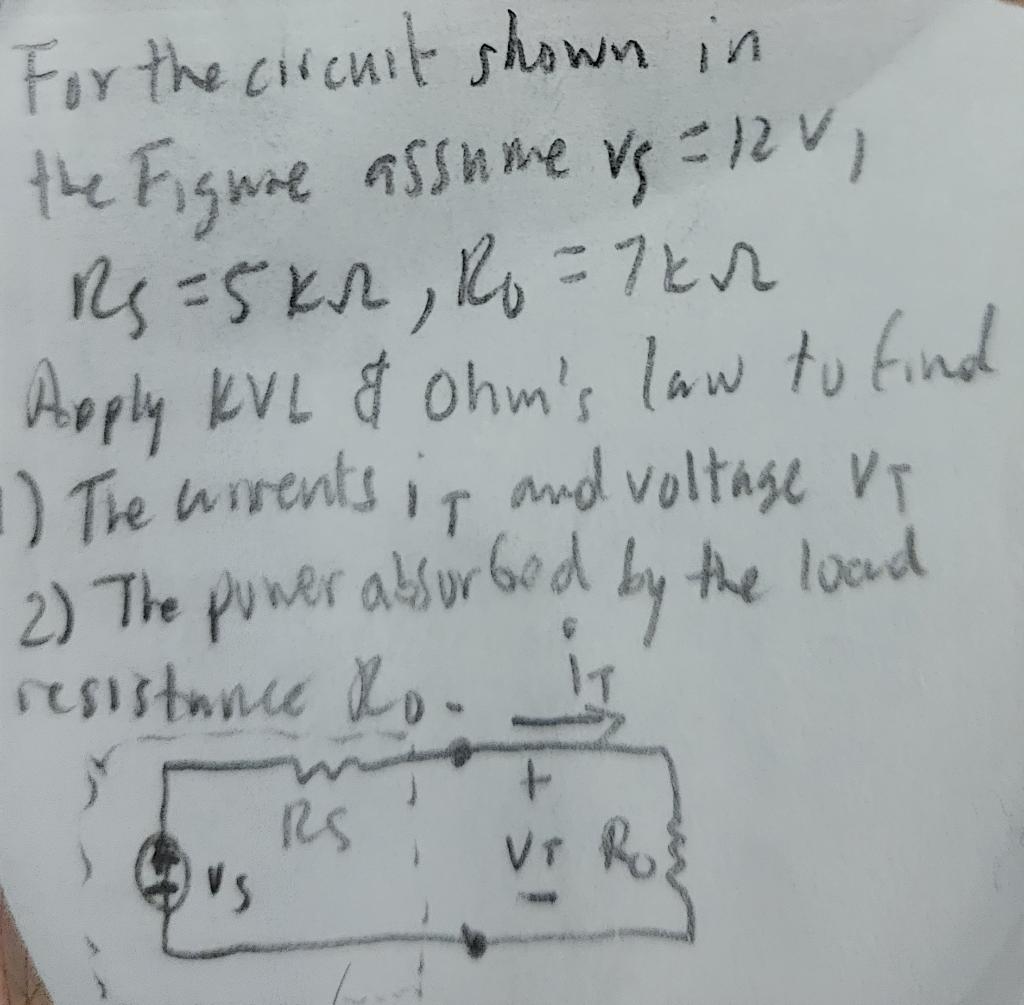 For the circuit shown in
the Figure assume vs = 12 V,
Rs = 5 kΩ, Ro = 7 kΩ
Apply KVL & Ohm's law to find
1) The currents iT and voltage VT
2) The power absorbed by the load
resistance Ro.
iT
+
Rs
VT Ro
vs
−